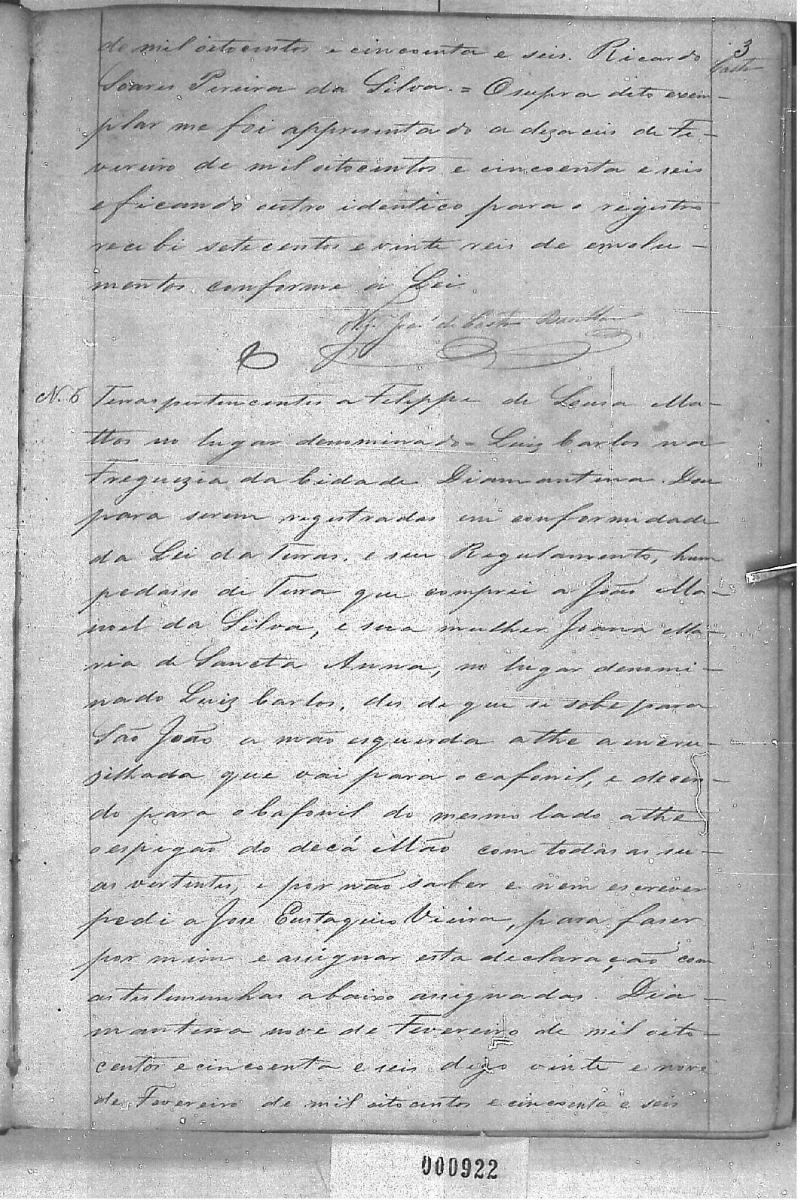 3
de mil oitocentos e cincoenta e seis. Ricardo
Soares Pereira da Silva. = O supra dito exem-
plar me foi appresentado a dezaceis de Fe-
vereiro de mil oitocentos e cincoenta e seis
e ficando outro identico para o registro
recebi setecentos e vinte reis de emolu-
mentos conforme a Lei.
José de Castro
N. 5 Terras pertencentes a Felippe de Sousa Ma-
ttos no lugar denominado = Luiz Carlos na
Freguezia da Cidade Diamantina. Dou
para serem registradas em conformidade
da Lei da Terras, e seu Regulamento, hum
pedasso de Terra que comprei a João Ma-
noel da Silva, e sua mulher Joana Ma-
ria de Sancta Anna, no lugar denomi-
nado Luiz Carlos, des de que se sobe para
São João a mão esquerda athe a encru-
silhada que vai para o cafonil, e decen-
do para o Cafonil do mesmo lado athe
o espigão do decá Mão com todas as su-
as vertentes, e por não saber e nem escrever
pedi a Jose Eustaquio Vieira, para faser
por mim e assignar esta declaração com
as testemunhas abaixo assignadas. Dia-
mantina nove de Fevereiro de mil oito-
centos e cincoenta e seis digo vinte e nove
de Fevereiro de mil oitocentos e cincoenta e seis
000922